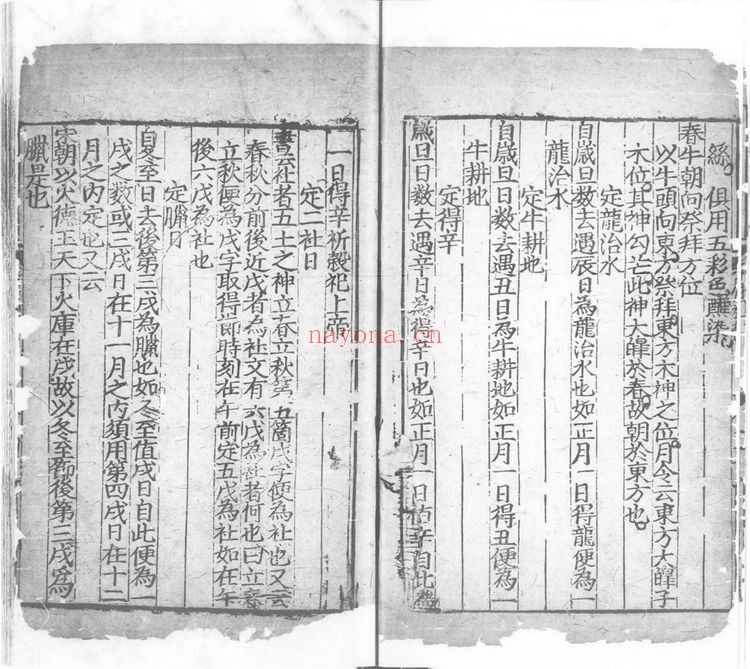 絲俱用五彩色蘸染
春牛朝向祭拜方位
以牛頭向東方祭拜東方木神之位月令云東方大皥子
木位其神勾芒此神大皥於春故朝於東方也
定龍治水
自歲旦日數去遇辰日為龍治水也如正月一日得龍便為一
龍治水
定牛耕地
自歲旦日數去遇丑日為牛耕地如正月一日得丑便為一
牛耕地
定得辛
歲旦日數去遇辛日為得辛日也如正月一日辛自此為
一日得辛祈穀祀上帝
定二社日
書云社者五土之神立春立秋第五箇戊字便為社也又云
春秋分前後近戊者為社文有六戊為社者何也曰立春
立秋便為戊字取得即時刻在午前定五戊為社如在午
後六戊為社也
定臘日
自冬至日之後第三戌為臘也如冬至值戌日自此便為一
戌之數或三戌日在十一月之內須用第四戌日在十二
月之內定也又云
宋朝以火德王天下火庫在戌故以冬至節後第三戌為
臘是也
nayona.cn